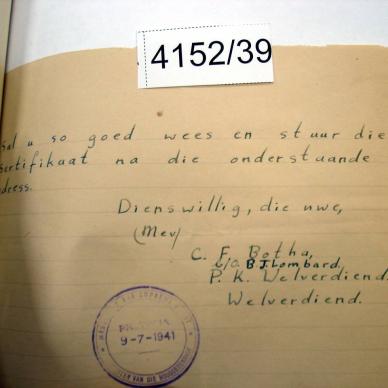 4152/39
sal u so goed wees en stuur die
sertifikaat na die onderstaande
dress.
Dienswillig, die uwe,
(Mev)
C. F. Botha,
c/o B J Lombard,
P. K. Welverdiend.
Welverdiend.
9-7-1941